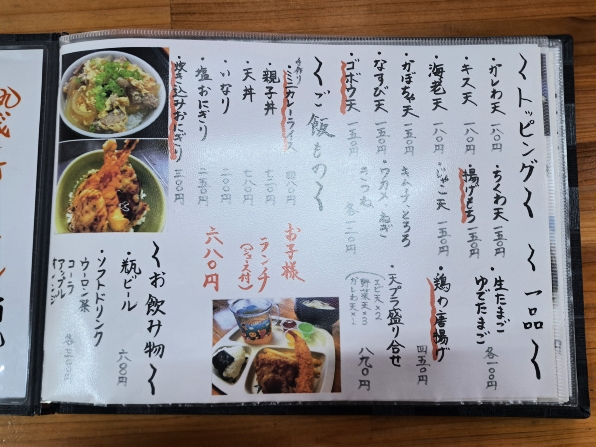 〜トッピング〜
・かしわ天 一八〇円
・キス天 一八〇円
・海老天 一八〇円
・かぼちゃ天 一五〇円
・なすび天 一五〇円
・ゴボウ天 一五〇円
・ちくわ天 一五〇円
・揚げもち 一五〇円
・じゃこ天 一五〇円
・キムチ、とろろ
・ワカメ、ねぎ
きつね
各一二〇円
〜一品〜
・生たまご
ゆでたまご
各一〇〇円
・鶏の唐揚げ
四五〇円
・天プラ盛り合せ
エビ天×2
野菜天×3
かしわ天×1
八九〇円
〜ご飯もの〜
手作り
・ミニカレーライス 四八〇円
・親子丼 七三〇円
・天丼 七八〇円
・いなり 一〇〇円
・塩おにぎり 一五〇円
・炊き込みおにぎり 三〇〇円
お子様
ランチ
(ジュース付)
六八〇円
〜お飲み物〜
・瓶ビール
六八〇円
・ソフトドリンク
ウーロン茶
コーラ
アップル
各三〇〇円